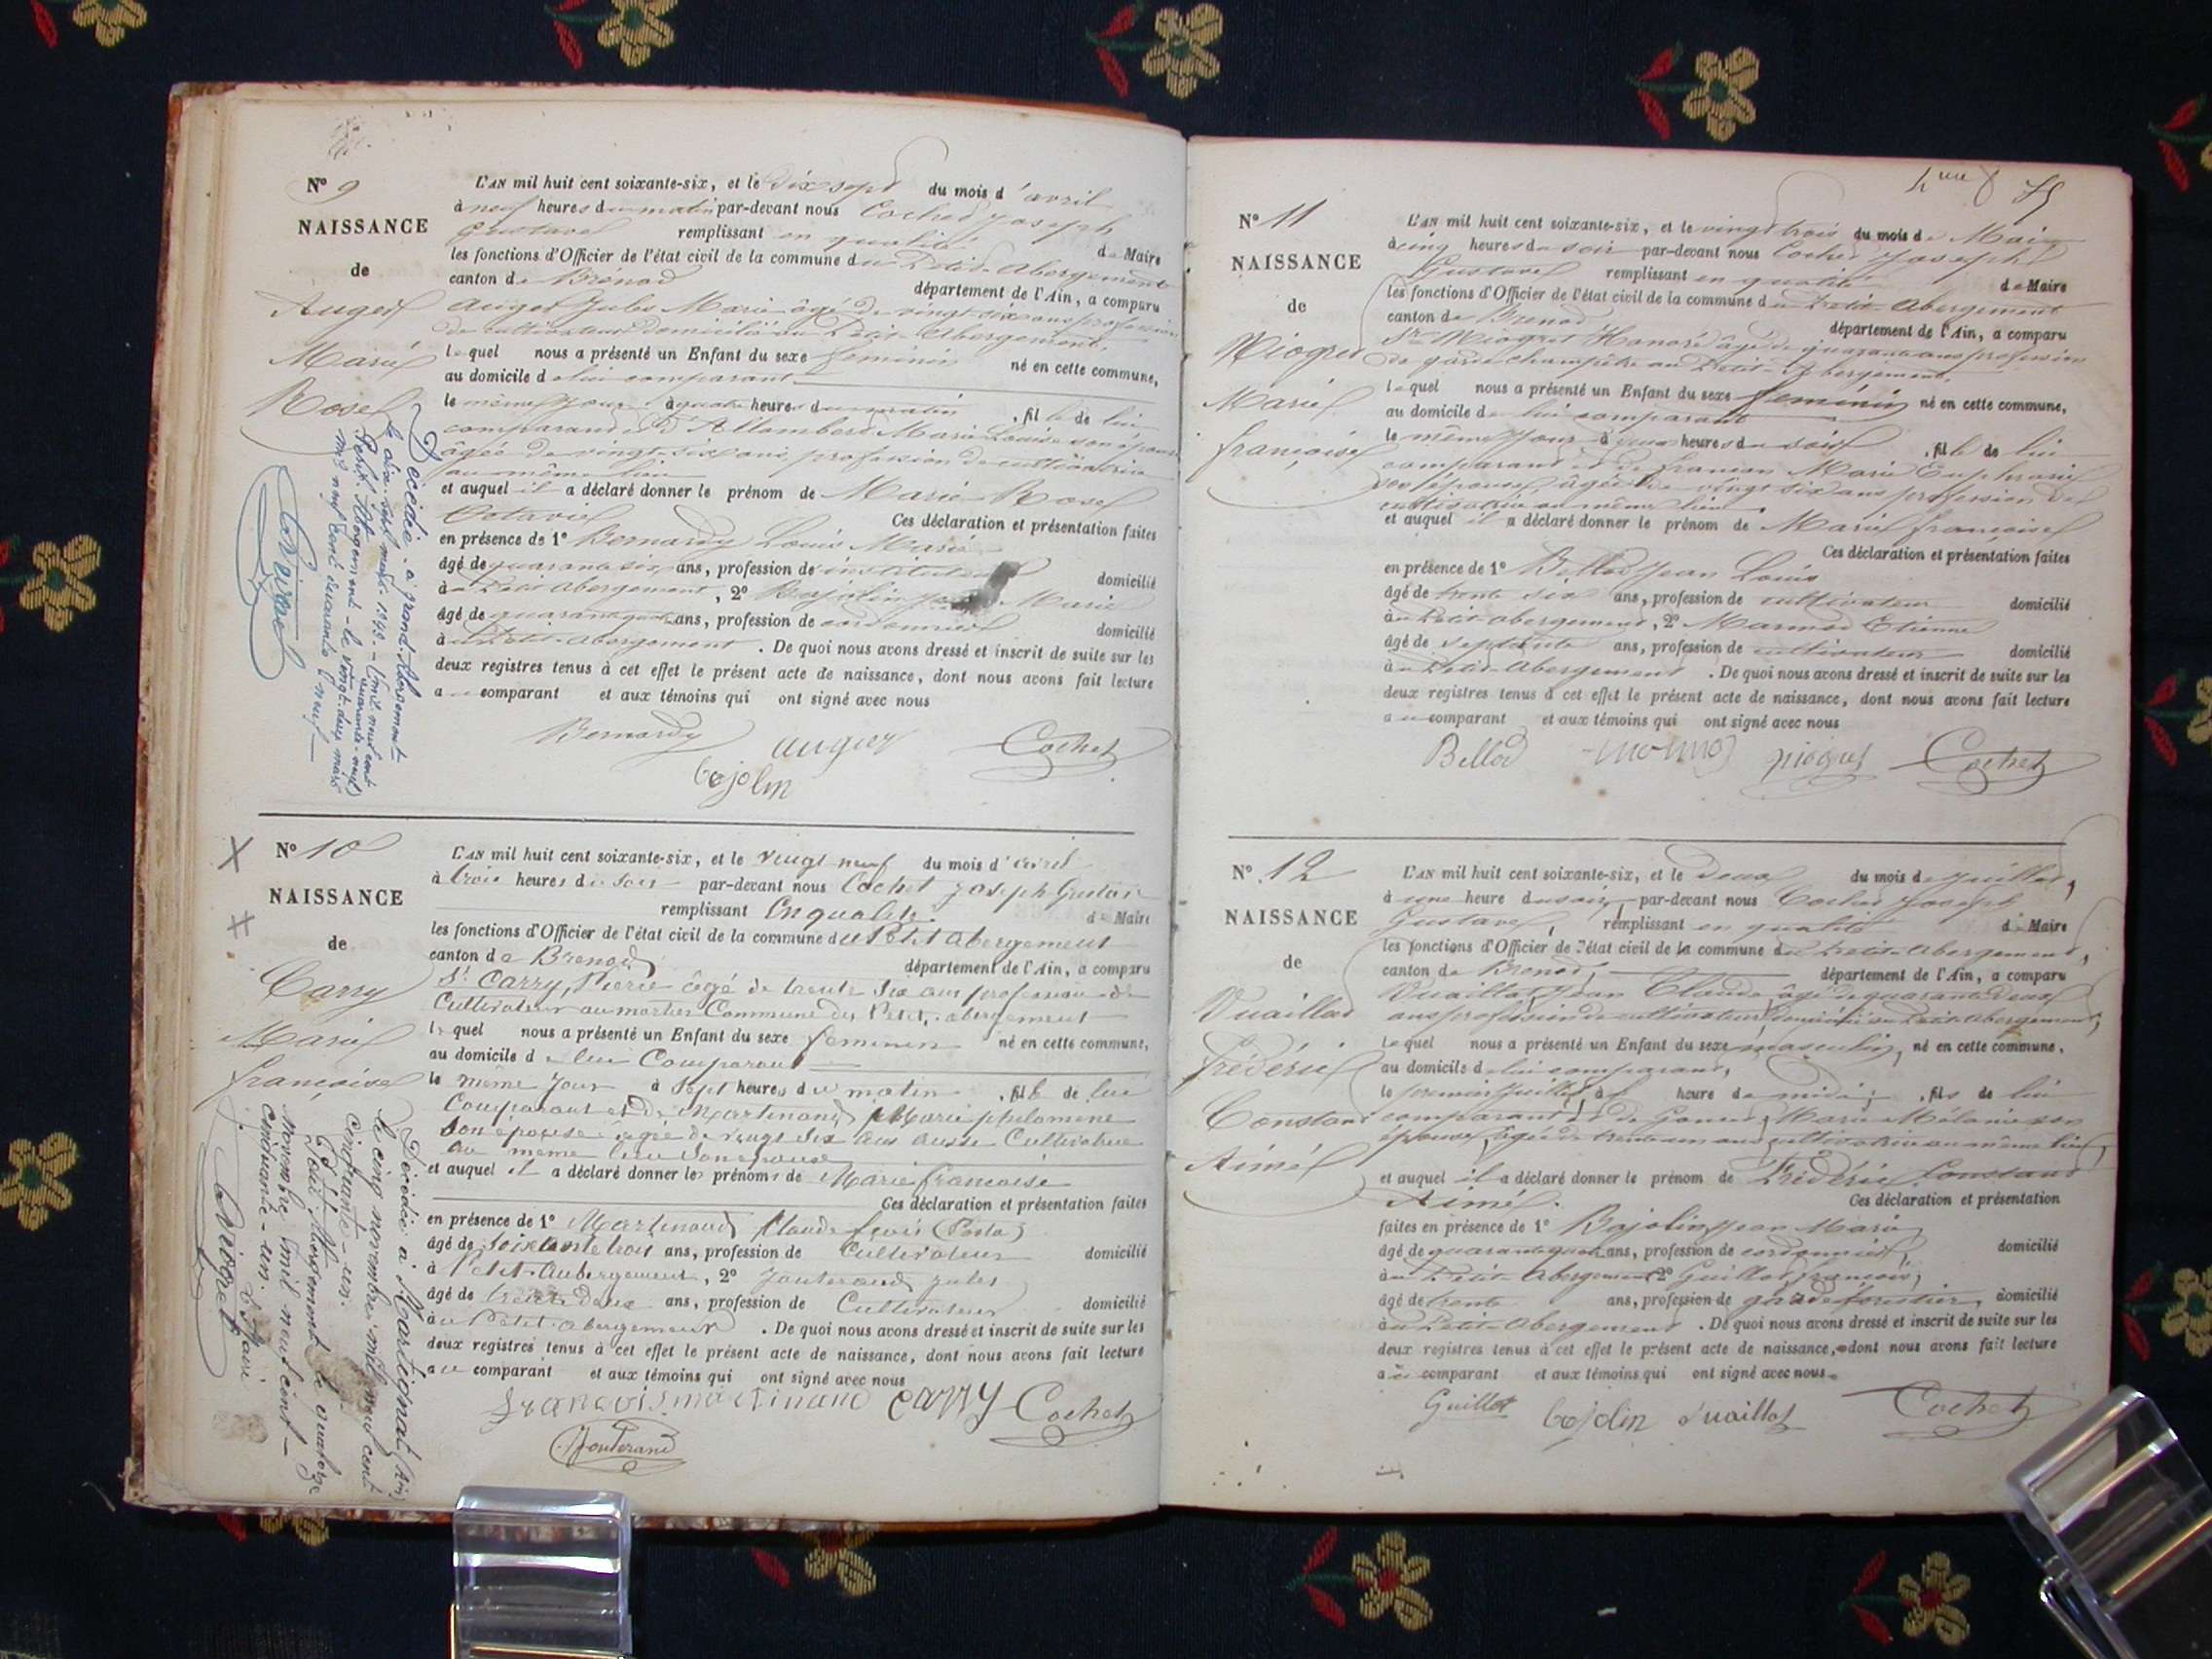 N° 9
NAISSANCE
de
Auger
Marie
Rose
L'AN mil huit cent soixante-six, et le dix sept du mois d'avril
à neuf heures du matin par-devant nous Cochet Joseph
Gustave remplissant en qualité de Maire
les fonctions d'Officier de l'état civil de la commune du Petit-Abergement
canton de Brénod département de l'Ain, a comparu
Auger Jules Marie âgé de vingt-six ans profession
de cultivateur domicilié au Petit-Abergement,
lequel nous a présenté un Enfant du sexe féminin né en cette commune,
au domicile de lui comparant
le même jour à quatre heures du matin, fille de lui
comparant et d'Allombert Marie Louise son épouse
âgée de vingt-six ans, profession de cultivatrice
au même lieu
et auquel il a déclaré donner le prénom de Marie Rose
Octavie Ces déclaration et présentation faites
en présence de 1° Bernardy Louis Marie
âgé de quarante six ans, profession de instituteur domicilié
à Petit Abergement, 2° Bojolin Jean Marie
âgé de quarante quatre ans, profession de cordonnier domicilié
à u Petit-Abergement. De quoi nous avons dressé et inscrit de suite sur les
deux registres tenus à cet effet le présent acte de naissance, dont nous avons fait lecture
au comparant et aux témoins qui ont signé avec nous
Bernardy auger Cochet
bojolin
Décédée à grand. Abergement
le dix-sept mars 1949 - (mil neuf cent
quarante-neuf)
Petit Abergement - le vingt-deux mars
mil neuf cent quarante neuf -
N° 10
NAISSANCE
de
Carry
Marie
françoise
L'AN mil huit cent soixante-six, et le vingt neuf du mois d'avril
à trois heures du soir par-devant nous Cochet Joseph Gustave
remplissant En qualité de Maire
les fonctions d'Officier de l'état civil de la commune du Petit Abergement
canton de Brenod département de l'Ain, a comparu
St Carry, Pierre âgé de trente six ans profession de
Cultivateur au mortier Commune du Petit-abergement
lequel nous a présenté un Enfant du sexe feminin né en cette commune,
au domicile de lui Comparant
le même jour à sept heures du matin, fille de lui
Comparant et de Martinand Marie philomene
Son épouse âgée de vingt six ans aussi Cultivatrice
au même lieu Son epouse
et auquel il a déclaré donner les prénoms de Marie francoise
Ces déclaration et présentation faites
en présence de 1° Martinand Claude françois (Posta)
âgé de soixante trois ans, profession de Cultivateur domicilié
à Petit-Aubergement, 2° Jouterand Jules
âgé de trente deux ans, profession de Cultivateur domicilié
à u Petit-abergement. De quoi nous avons dressé et inscrit de suite sur les
deux registres tenus à cet effet le présent acte de naissance, dont nous avons fait lecture
au comparant et aux témoins qui ont signé avec nous
françois martinand carry Cochet
Jouterand
Décédée à Martignat (Ain)
le cinq novembre mil neuf cent
cinquante-un.
Petit Abergement le quatorze
Novembre mil neuf cent -
cinquante-un.
Le Maire
N° 11
NAISSANCE
de
Miogret
Marie
françoise
L'AN mil huit cent soixante-six, et le vingt trois du mois de Mai
à cinq heures du soir par-devant nous Cochet Joseph
Gustave remplissant en qualité de Maire
les fonctions d'Officier de l'état civil de la commune du Petit-Abergement
canton de Brenod département de l'Ain, a comparu
Sr Miogret Honoré âgé de quarante ans profession
de garde champêtre au Petit-Abergement,
lequel nous a présenté un Enfant du sexe féminin né en cette commune,
au domicile de lui comparant
le même jour à heures du soir, fille de lui
comparant et de françon Marie Euphrasie
son épouse, âgée de vingt six ans profession de
cultivatrice au même lieu
et auquel il a déclaré donner le prénom de Marie françoise
Ces déclaration et présentation faites
en présence de 1° Bellod Jean Louis
âgé de trente six ans, profession de cultivateur domicilié
à u Petit-abergement, 2° Marmod Etienne
âgé de septante ans, profession de cultivateur domicilié
à u Petit-Abergement. De quoi nous avons dressé et inscrit de suite sur les
deux registres tenus à cet effet le présent acte de naissance, dont nous avons fait lecture
au comparant et aux témoins qui ont signé avec nous
Bellod miogret Cochet
N° 12
NAISSANCE
de
Vuaillat
frédéric
Constant
Aimé
L'AN mil huit cent soixante-six, et le deux du mois de juillet,
à une heure du soir, par-devant nous Cochet Joseph
Gustave, remplissant en qualité de Maire
les fonctions d'Officier de l'état civil de la commune du Petit-Abergement,
canton de Brenod, département de l'Ain, a comparu
Vuaillat, Jean Claude, âgé de quarante deux
ans profession de cultivateur, domicilié au Petit-Abergement,
lequel nous a présenté un Enfant du sexe masculin, né en cette commune,
au domicile de lui comparant,
le premier juillet, à heure de midi, fils de lui
comparant, et de Marie Mélanie son
épouse, âgée de trente un ans cultivatrice au même lieu,
et auquel il a déclaré donner le prénom de Frédéric Constant
Aimé. Ces déclaration et présentation
faites en présence de 1° Bojolin Jean Marie
âgé de quarante quatre ans, profession de cordonnier, domicilié
à u Petit-Abergement 2° Guillot, françois,
âgé de trente ans, profession de garde forestier, domicilié
à u Petit-Abergement. De quoi nous avons dressé et inscrit de suite sur les
deux registres tenus à cet effet le présent acte de naissance, dont nous avons fait lecture
au comparant et aux témoins qui ont signé avec nous.
Guillot bojolin Vuaillat Cochet